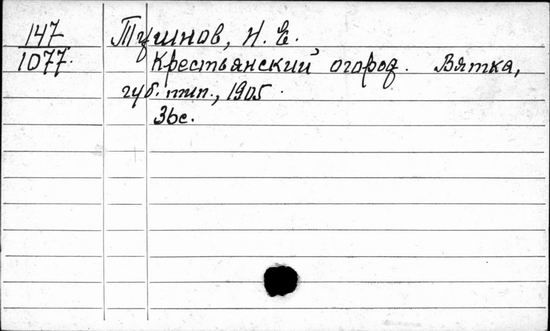 147 Тушнов, Н. Е.
1077. Крестьянский огород. Вятка,
губ. тип., 1905.
36с.